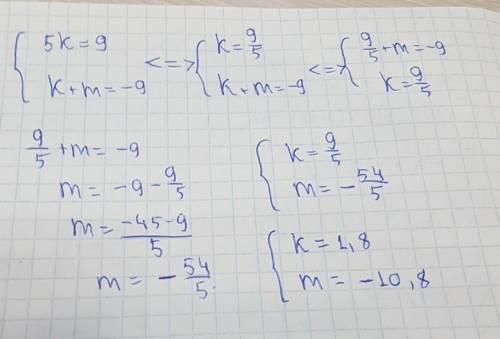 { 5k = 9
k + m = -9 <=> { k = 9/5
k + m = -9 <=> { 9/5 + m = -9
k = 9/5
9/5 + m = -9
m = -9 - 9/5
m = -45-9/5
m = - 54/5
{ k = 9/5
m = - 54/5
{ k = 1,8
m = -10,8